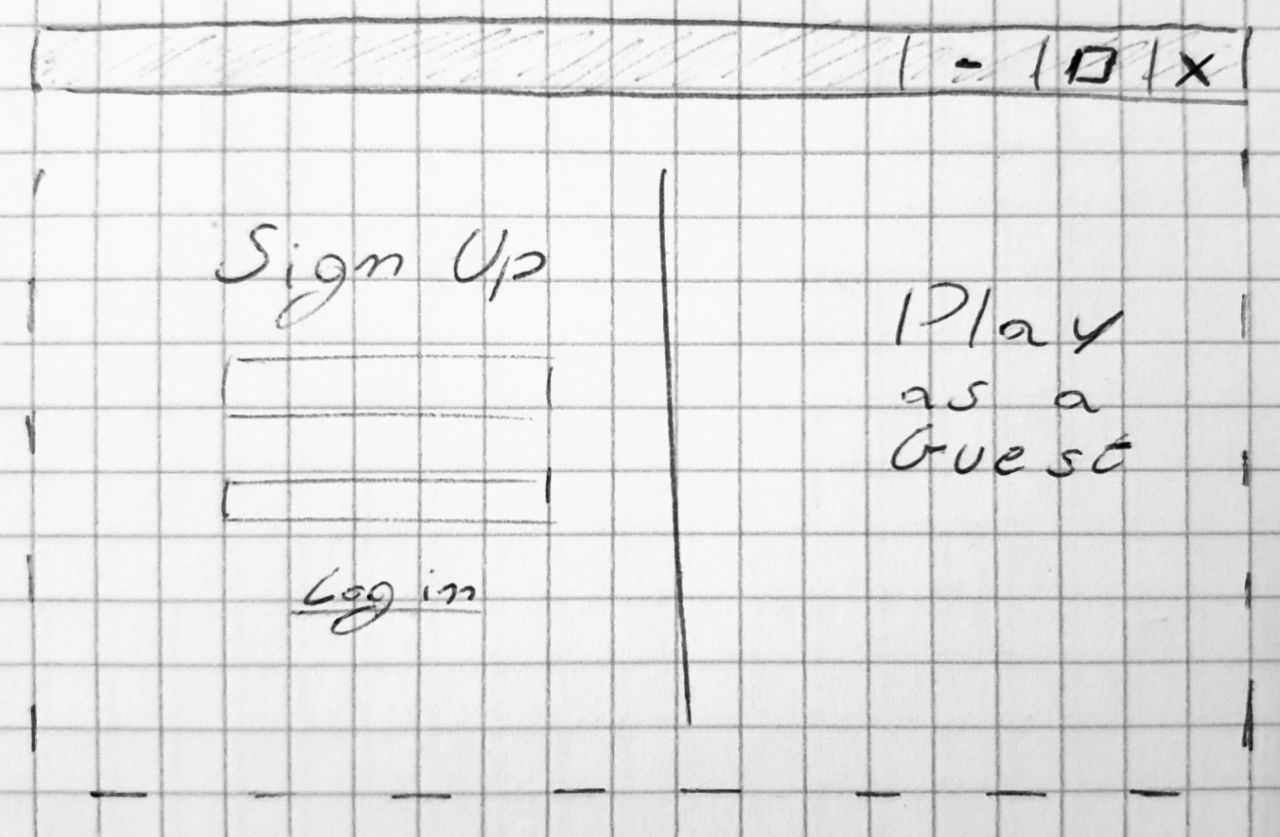 Sign Up
Log in
Play
as a
Guest